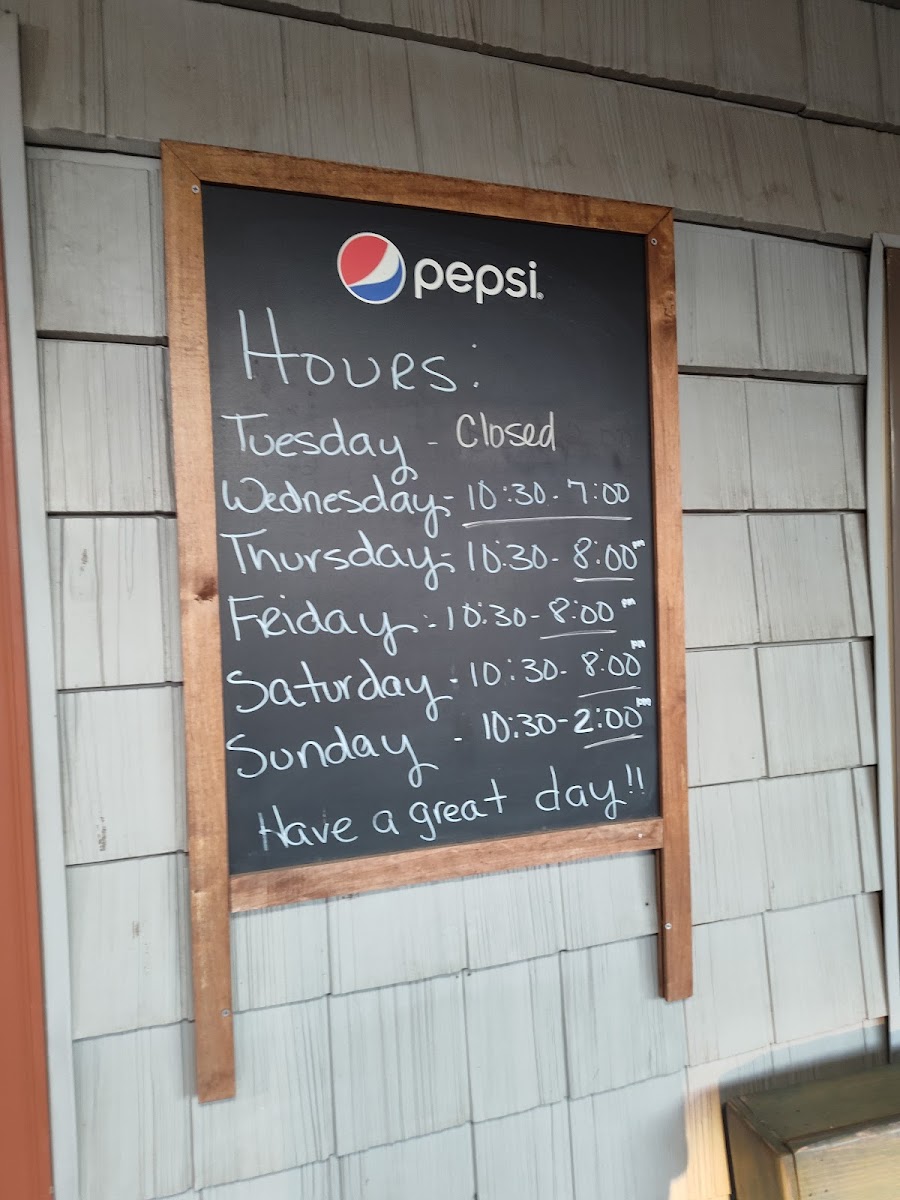 pepsi.
Hours:
Tuesday - Closed
Wednesday - 10:30 - 7:00
Thursday - 10:30 - 8:00 pm
Friday - 10:30 - 8:00 pm
Saturday - 10:30 - 8:00 pm
Sunday - 10:30 - 2:00 pm
Have a great day!!